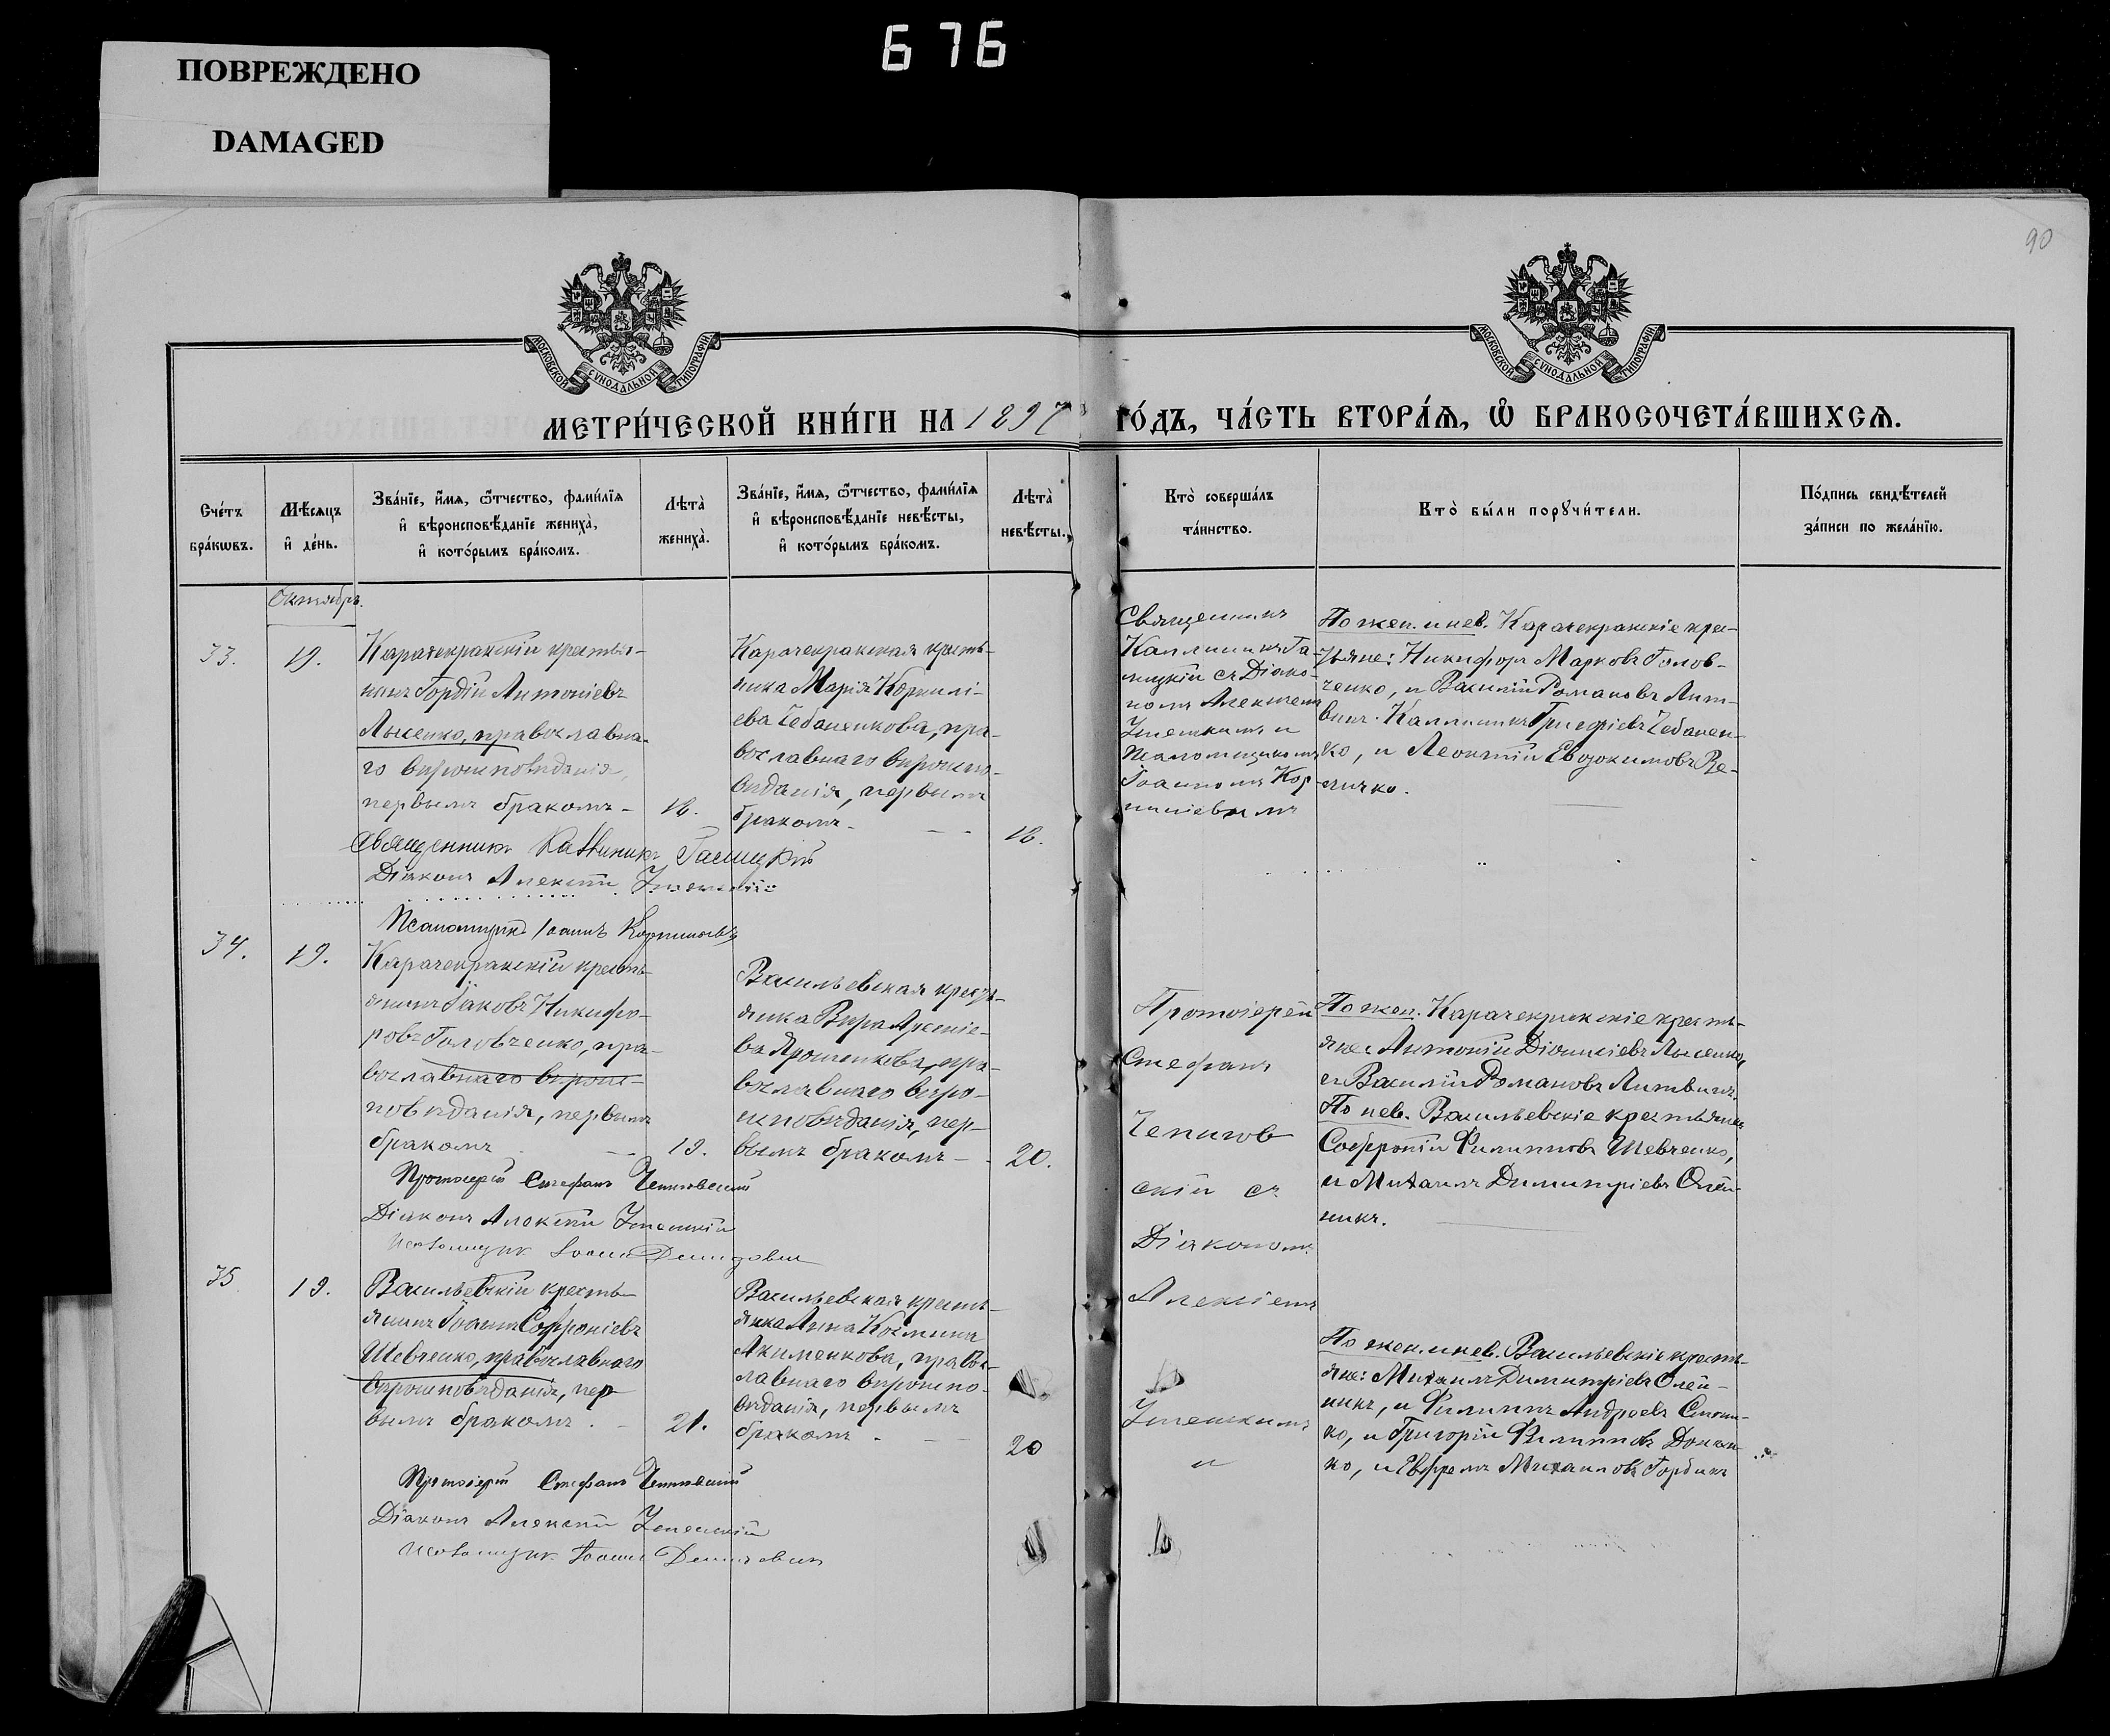 676
ПОВРЕЖДЕНО
DAMAGED
90
МОСКОВСКОЙ СѴНОДАЛЬНОЙ ТИПОГРАФІИ
МОСКОВСКОЙ СѴНОДАЛЬНОЙ ТИПОГРАФІИ
МЕТРИ́ЧЕСКОЙ КНИ́ГИ НА 1897 ГО́ДЪ, ЧА́СТЬ ВТОРА́Ѧ, Ѽ БРАКОСОЧЕТА́ВШИХСѦ.
Сче́тъ
бра́кωвъ.
Мѣ́сяцъ
и҆ де́нь.
Зва́нїе, и҆́мѧ, ѻ҆́тчество, фами́лїѧ
и҆ вѣроисповѣ́данїе жениха̀,
и҆ кото́рымъ бра́комъ.
Лѣта̀
жениха̀.
Зва́нїе, и҆́мѧ, ѻ҆́тчество, фами́лїѧ
и҆ вѣроисповѣ́данїе невѣ́сты,
и҆ кото́рымъ бра́комъ.
Лѣта̀
невѣ́сты.
Кто̀ соверша́лъ
та́инство.
Кто̀ бы́ли порꙋчи́тели.
По́дпись свидѣ́телей
за́писи по жела́нїю.
Октябрь.
33.
19.
Карачекракскій крестья-
нинъ Гордій Антоніевъ
Лысенко, православна-
го вѣроисповѣданія,
первымъ бракомъ –
18.
Карачекракская кресть-
янка Марія Корнилі-
ева Чебаненкова, пра-
вославнаго вѣроиспо-
вѣданія, первымъ
бракомъ –
18.
Священникъ
Каллиникъ Га-
лицкій съ Діако-
номъ Алексіемъ
и
Псаломщикомъ
Іоанномъ Кор-
ниліевымъ
По жен. и нев. Карачекракскіе крес-
тьяне: Никифоръ Марковъ Голов-
ченко, и Василій Романовъ Лит-
винъ. Каллиникъ Чебанен-
ко, и Леонтій Евдокимовъ Ве-
личко.
Священникъ Каллиникъ Галицкій
Діаконъ Алексій
Псаломщикъ Іоаннъ Корниліевъ
34.
19.
Карачекракскій кресть-
янинъ Іаковъ Никифо-
ровъ Головченко, пра-
вославнаго вѣроис-
повѣданія, первымъ
бракомъ
19.
Васильевская кресть-
янка Вѣра Арсеніе-
ва Ярошенкова, пра-
вославнаго вѣро-
исповѣданія, пер-
вымъ бракомъ –
20.
Протоіерей
Стефанъ
Чепигов
скій съ
Діакономъ
Алексіемъ
и
По жен. Карачекракскіе кресть-
яне: Антоній Діонисіевъ Лысенко,
и Василій Романовъ Литвинъ.
По нев. Васильевскіе крестьяне
Софроній Филипповъ Шевченко,
и Михаилъ Димитріевъ Олей-
никъ.
Протоіерей Стефанъ Чепиговскій
Діаконъ Алексій
Псаломщик Іоаннъ
35
19.
Васильевскій кресть-
янинъ Іоаннъ Софроніевъ
Шевченко, православнаго
вѣроисповѣданія, пер
вымъ бракомъ. –
21.
Васильевская кресть-
янка Анна Космина
Акименкова, правос-
лавнаго вѣроиспо-
вѣданія, первымъ
бракомъ.
20
По жен. и нев. Васильевскіе кресть-
яне: Михаилъ Димитріевъ Олей-
никъ, и Филиппъ Андреевъ
ко, и Григорій Филипповъ
ко, и Ефремъ Михаиловъ
Протоіерей Стефанъ Чепиговскій
Діаконъ Алексій
Псаломщик Іоаннъ